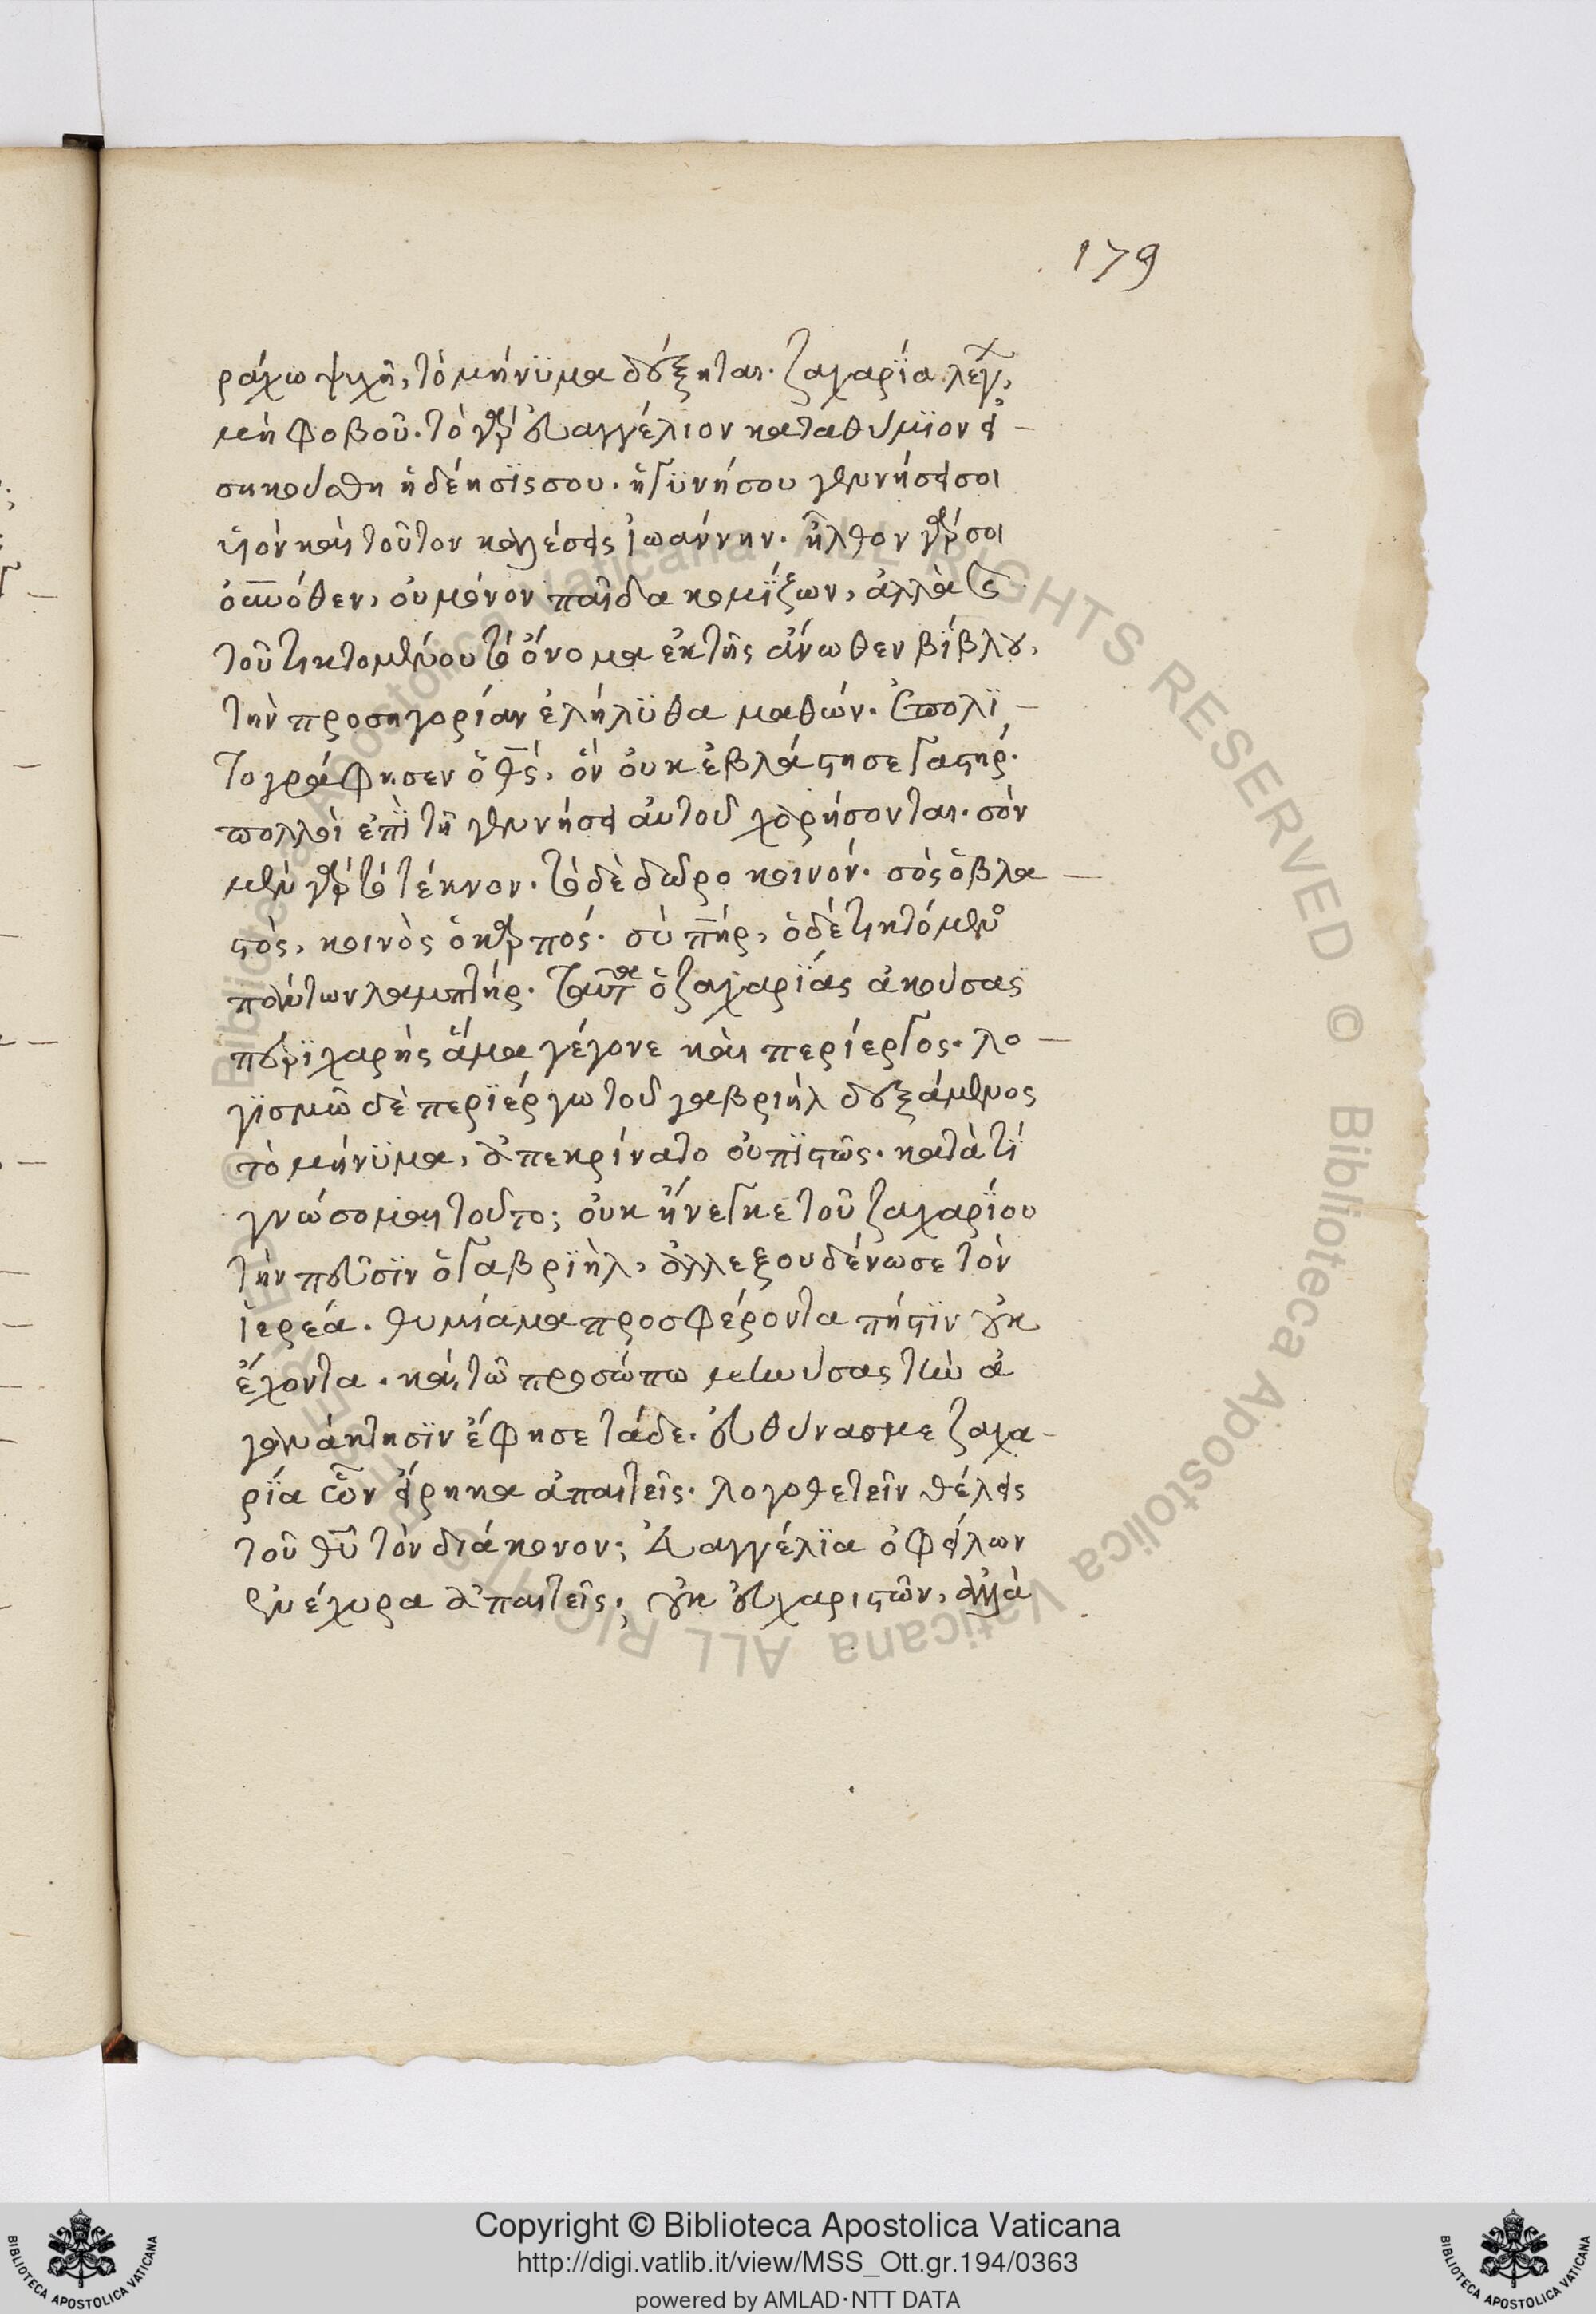 179
ράχω ψυχῆ, τὸ μήνϋμα δέξηται. ζαχαρΐα λέγ,
μὴ φοβοῦ. τὸ γὰρ εὐαγγέλιον καταθύμϊον εἰ
σηκούσθη ἡ δέησΐς σου. ἡ γϋνή σου γεννήσει σοι
υἱὸν καὶ τοῦτον καλέσεις ἰωάννην. ἦλθον γάρ σοι
οὐνόθεν, οὐ μόνον παῖδα κομΐζων, ἀλλὰ καὶ
τοῦ τικτομένου τὸ ὄνομα ἐκ τῆς ἄνωθεν βίβλου,
τὴν προσηγορίαν ἐλήλϋθα μαθών. ἐπολϊ
τογράφησεν ὁ θς, ὃν οὐκ ἐβλάστησε γαστήρ.
πολλοὶ ἐπῒ τῆ γεννήσει αὐτοῦ χαρήσονται. σὸν
μὲν γὰρ τὸ τέκνον. τὸ δὲ δῶρο κοινόν. σὸς ὁ βλα
στὸς, κοινὸς ὁ καρπός. σὺ πηρ, ὁ δὲ τικτόμενο
πάντων λαμπτήρ. ταῦτα ὁ ζαχαρΐας ἀκούσας
περϊχαρὴς ἅμα γέγονε καὶ περίεργος. λο
γϊσμῶ δὲ περϊέργω τοῦ γαβριὴλ δεξάμενος
τὸ μήνϋμα, ἀπεκρίνατο οὐ πϊστῶς. κατὰ τΐ
γνώσομαι τοῦτο; οὐκ ἤνεγκε τοῦ ζαχαρΐου
τὴν πεῦσϊν ὁ γαβρϊὴλ, ἀλλ εξουδένωσε τὸν
ἱερέα. θυμίαμα προσφέροντα πήστϊν οὐκ
ἔχοντα. καὶ τῶ προσώπω μηνύσας τὴν ἀ
γανάκτησϊν ἔφησε τάδε. εὐθύνας με ζαχα
ρΐα ὧν εἴρηκα ἀπαιτεῖς. λογοθετεῖν θέλεις
τοῦ θυ τὸν διάκονον; εὐαγγέλϊα ὀφείλων
ἐνέχυρα ἀπαιτεῖς; οὐκ εὐχαριστῶν, ἀλλὰ
Copyright © Biblioteca Apostolica Vaticana
http://digi.vatlib.it/view/MSS_Ott.gr.194/0363
powered by AMLAD·NTT DATA